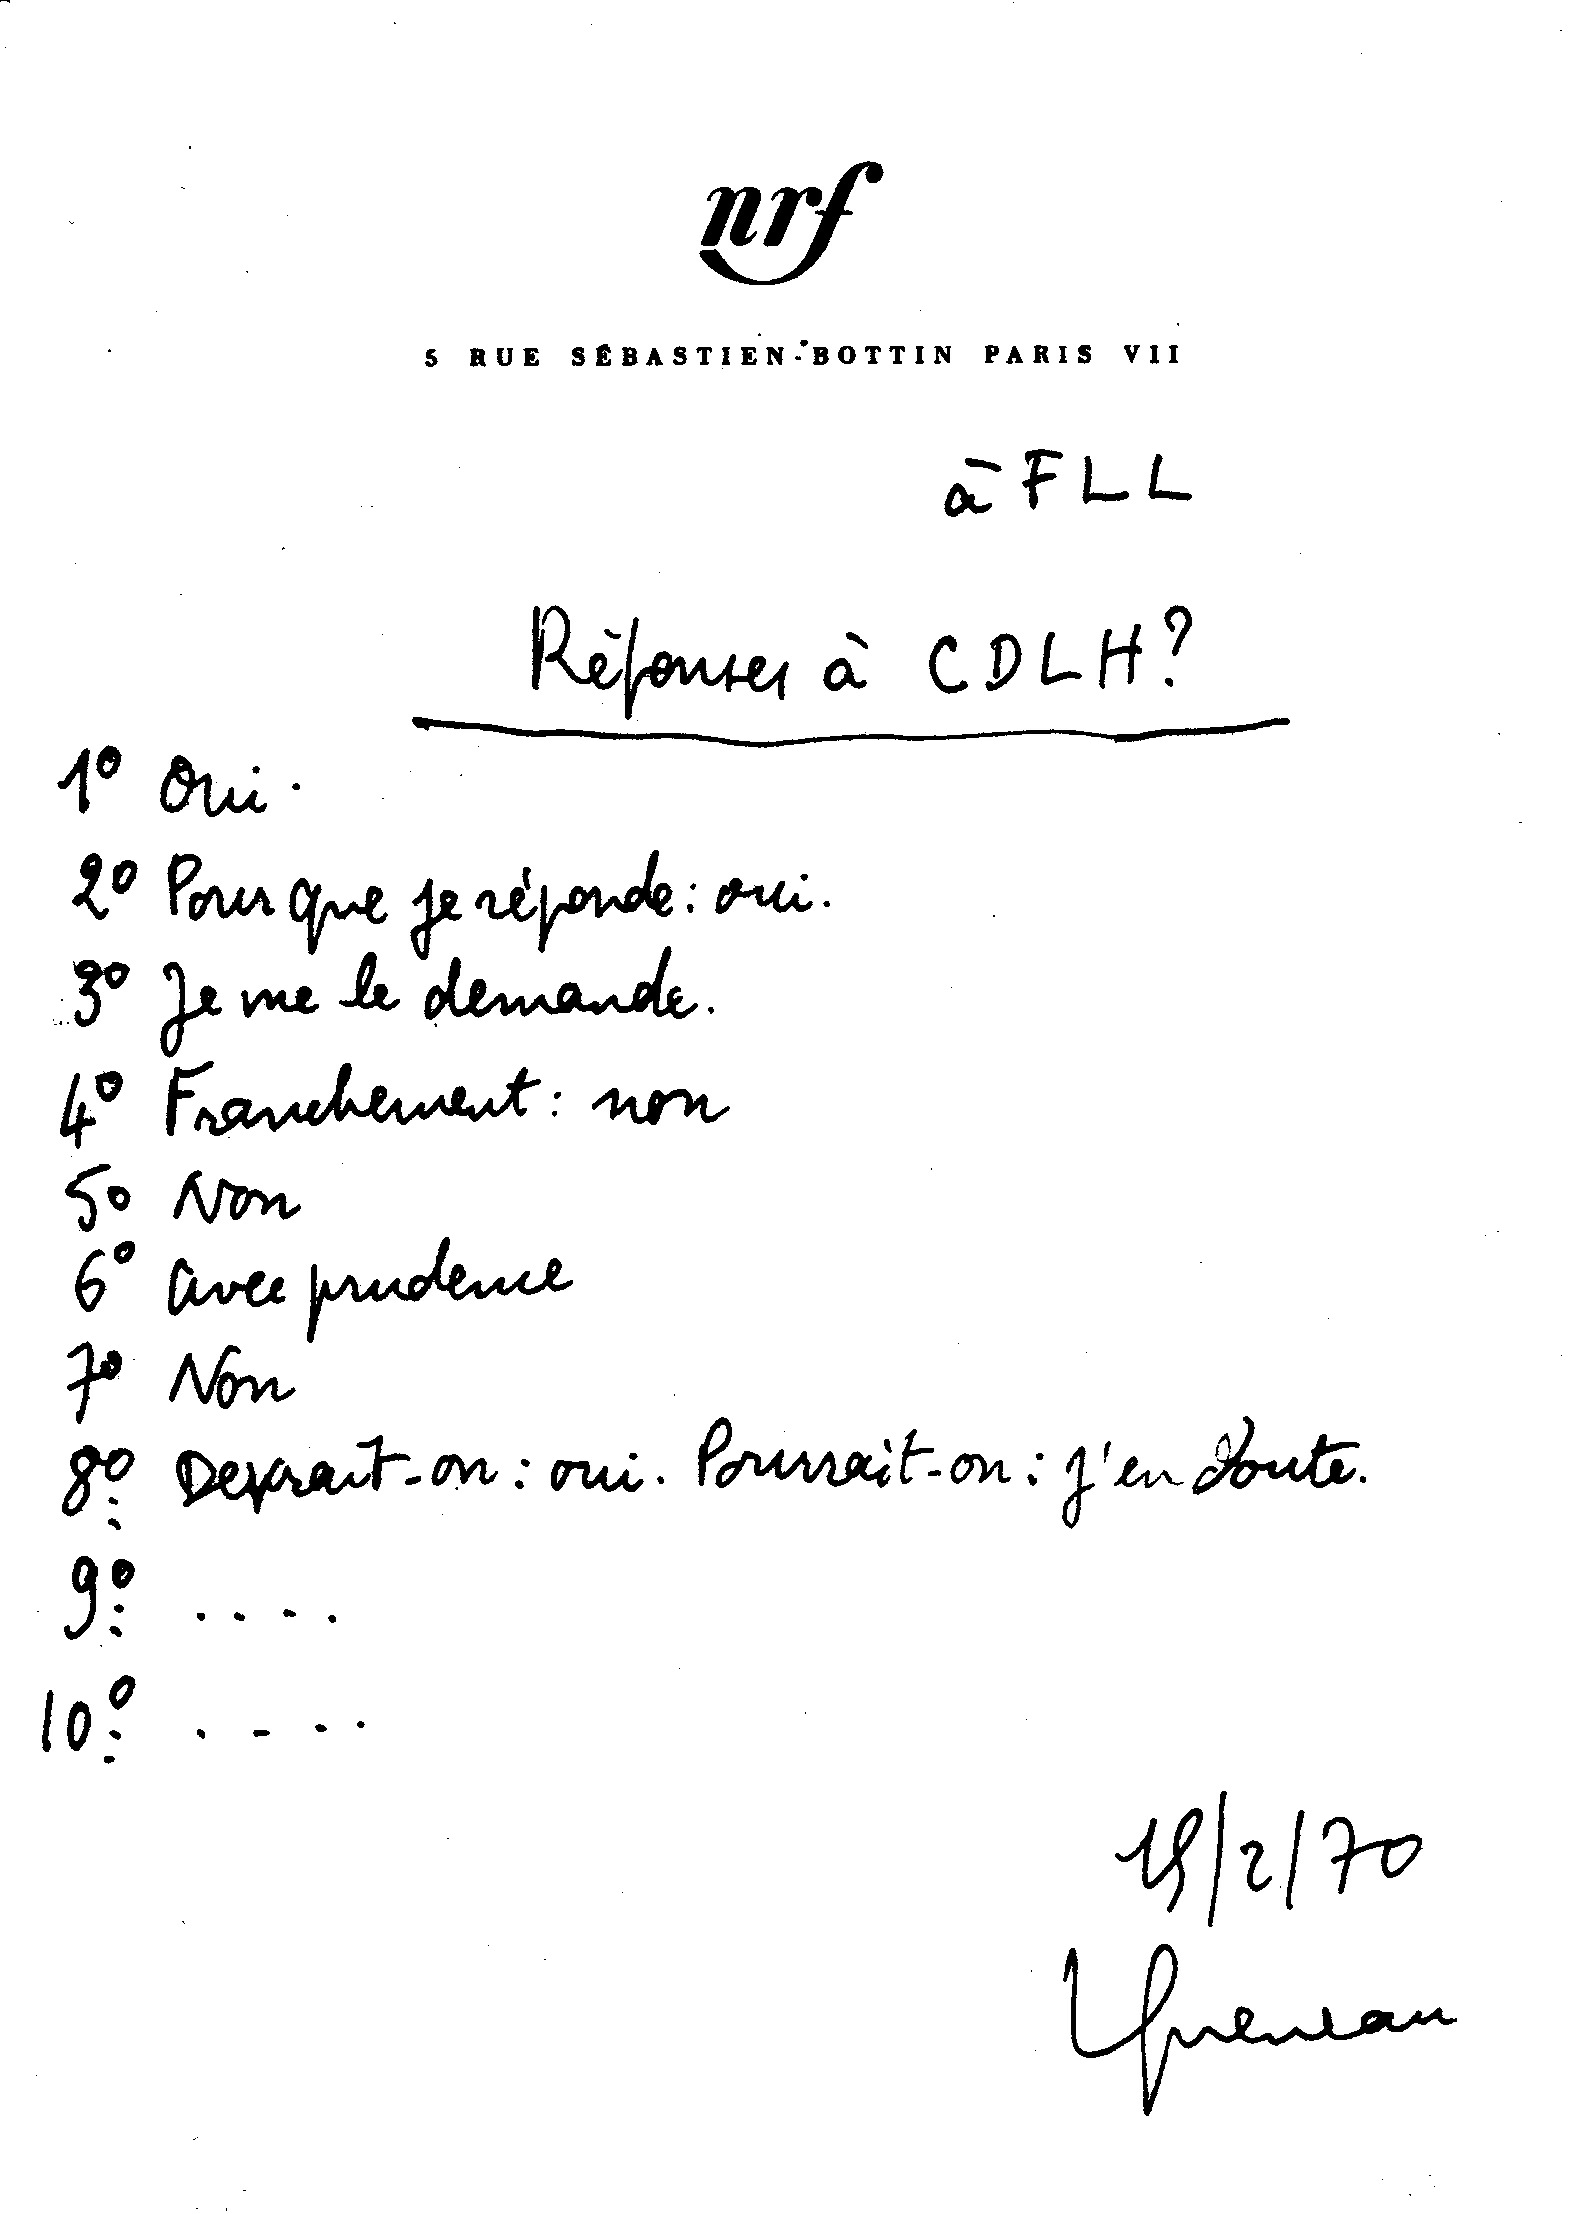 nrf
5 RUE SÉBASTIEN-BOTTIN PARIS VII
à FLL
Réponses à CDLH?
1° Oui.
2° Pour que je réponde: oui.
3° Je me le demande.
4° Franchement: non
5° Non
6° Avec prudence
7° Non
8° Devrait-on: oui. Pourrait-on: j'en doute.
9° ....
10° ....
15/2/70
Queneau